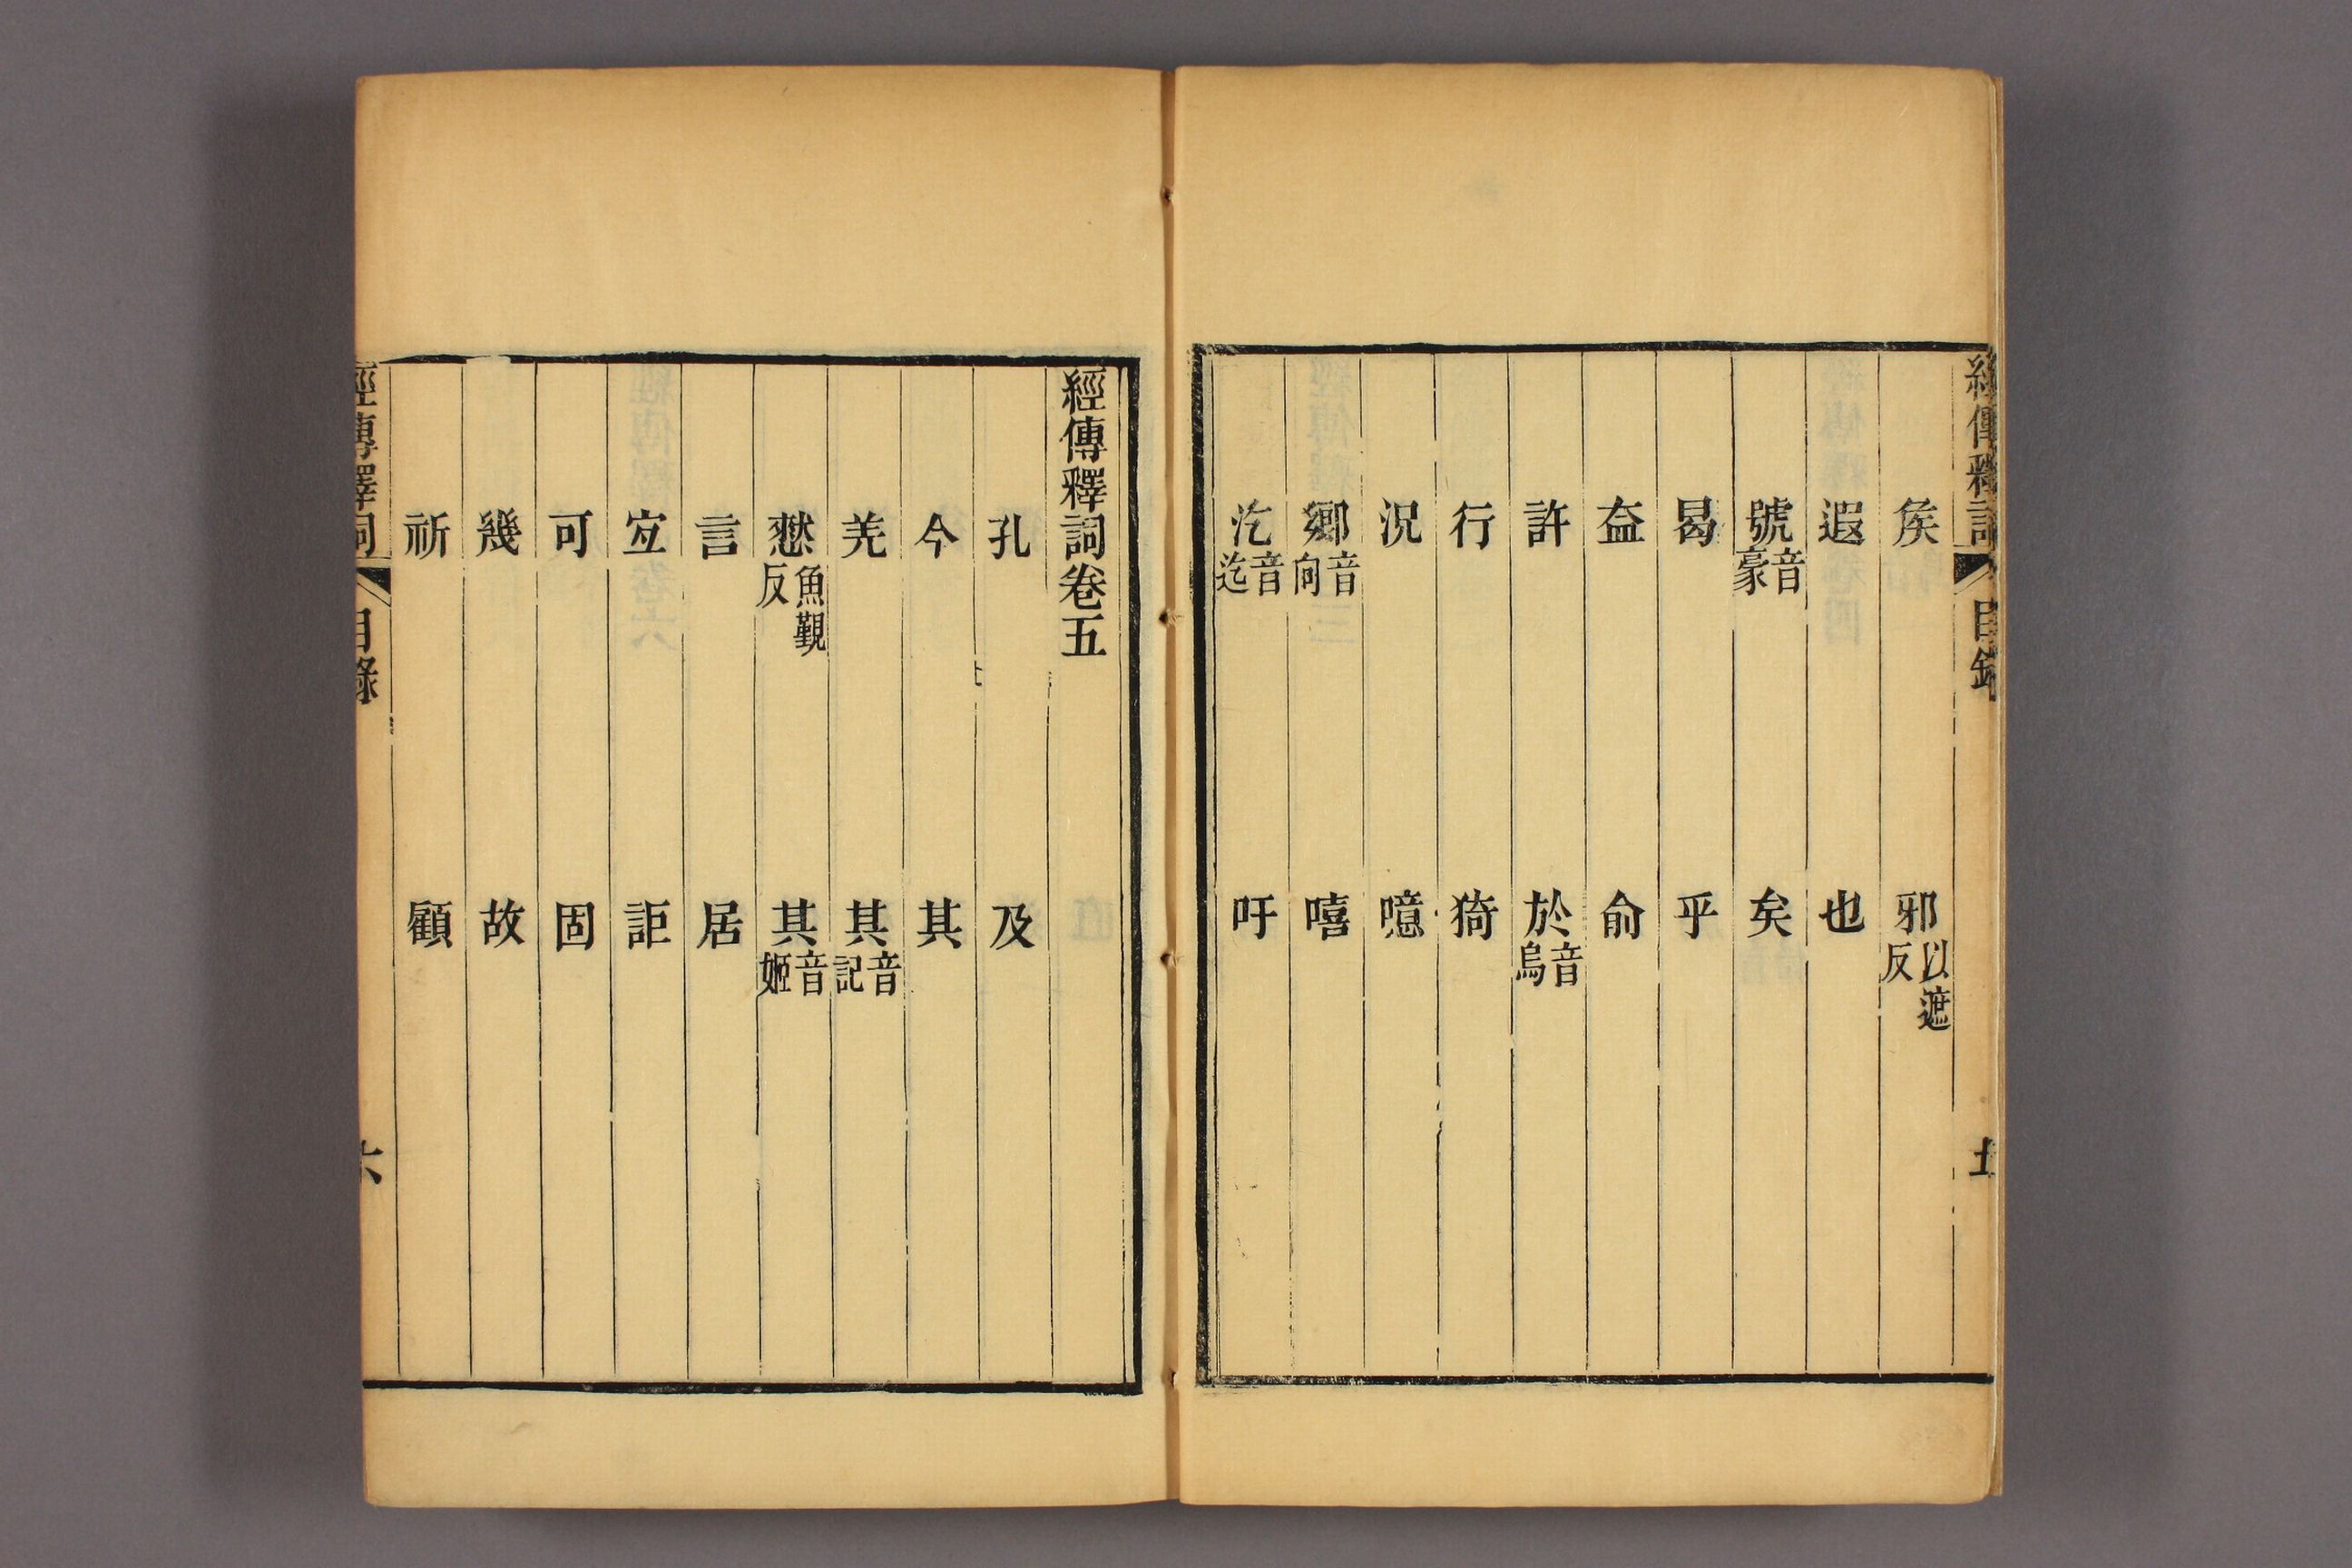 經傳釋詞 目錄 五
矦 邪以遮反
遐 也
號音豪 矣
曷 乎
益 俞
許 於音烏
行 猗
況 噫
鄉音向 嘻
汔音迄 吁
經傳釋詞卷五
孔 及
今 其
羌 其音記
憖魚覲反 其音姬
言 居
宜 詎
可 固
幾 故
祈 顧
經傳釋詞 目錄 六